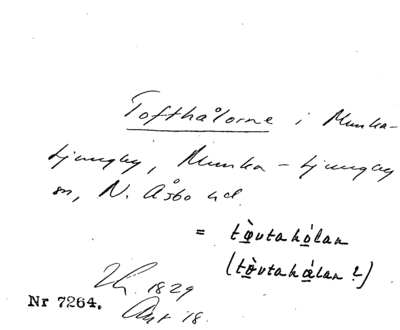 Tofthålorne i Munka-
Ljungby, Munka-Ljungby
sn, N. Åsbo hd.
= tò̱vtahó̱lan
(tò̱vtahá̱lan?)
1829
Nr 7264.